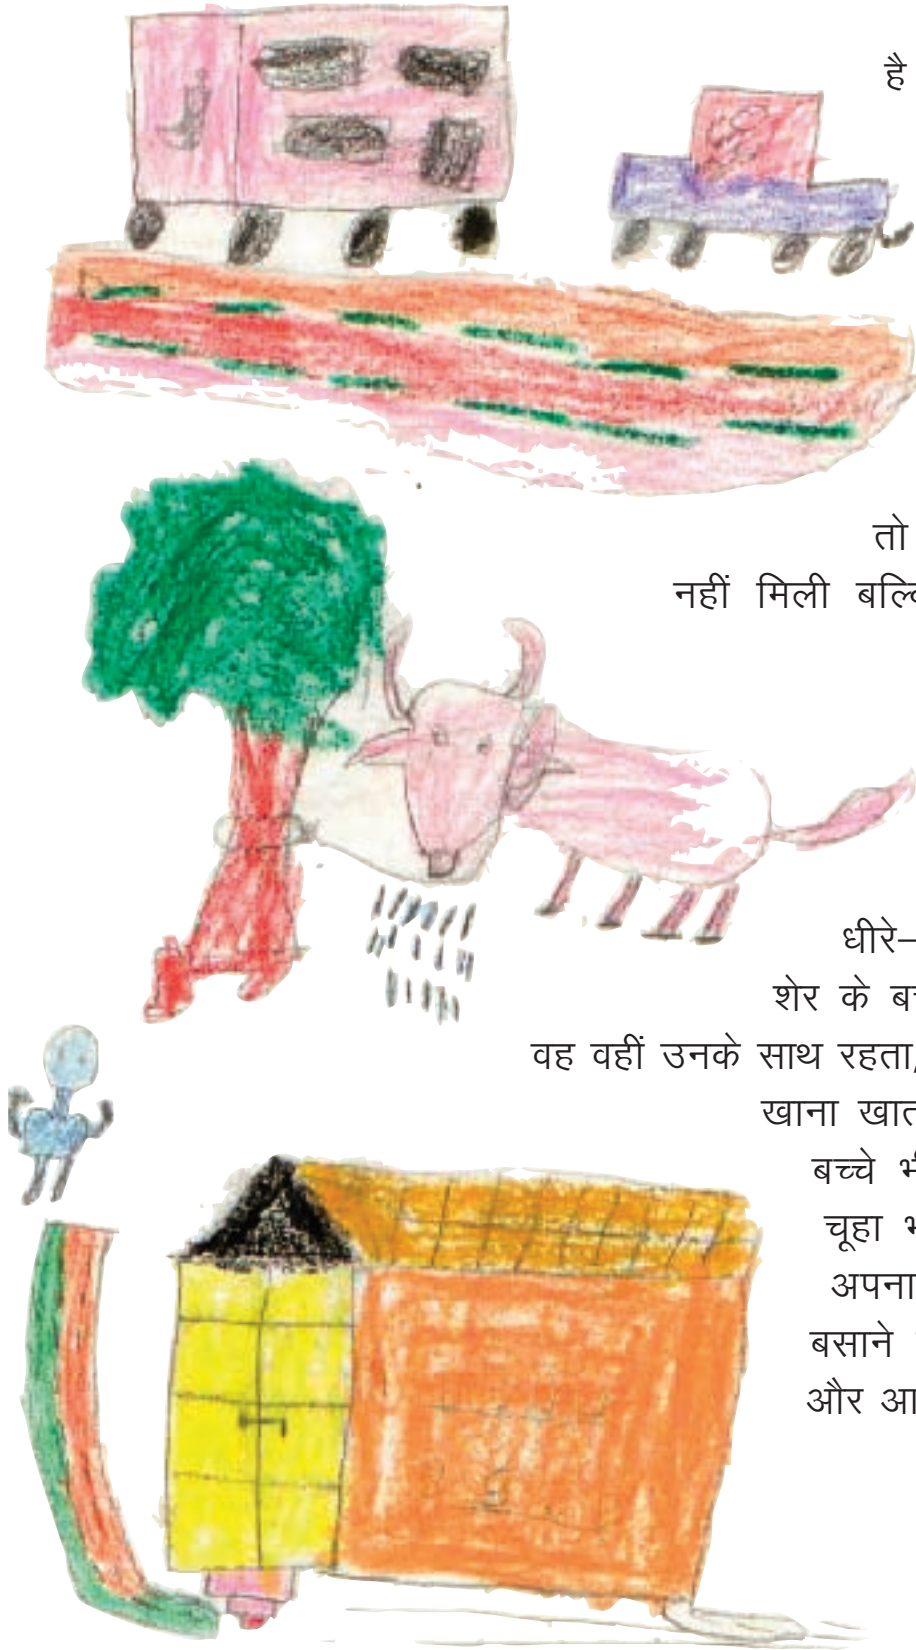 है
तो
नहीं मिली
धीरे–
शेर के
वह वहीं उनके साथ रहता,
खाना
बच्चे
चूहा
अपना
बसाने
और